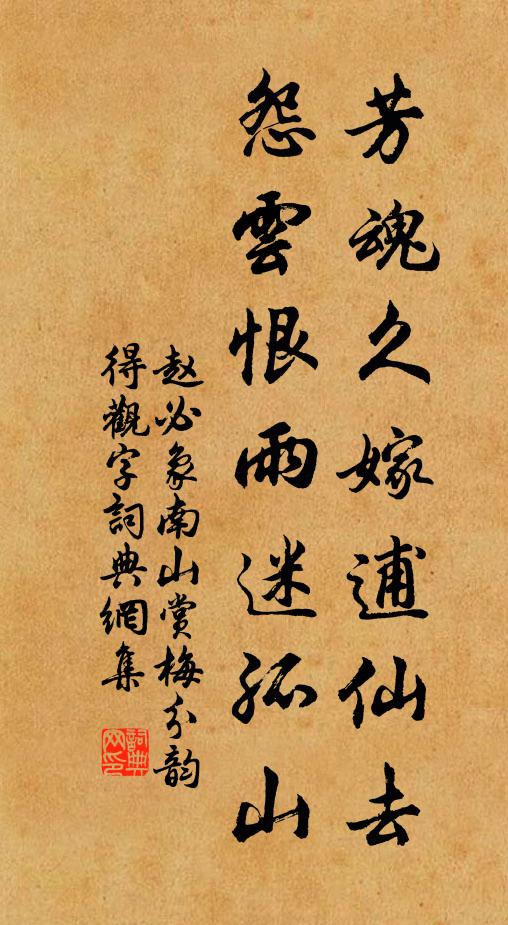 芳魂久嫁逋仙去
怨雲恨雨迷孤山
赵必象南山赏梅分韵
得觀字詞典網集
詞典网印